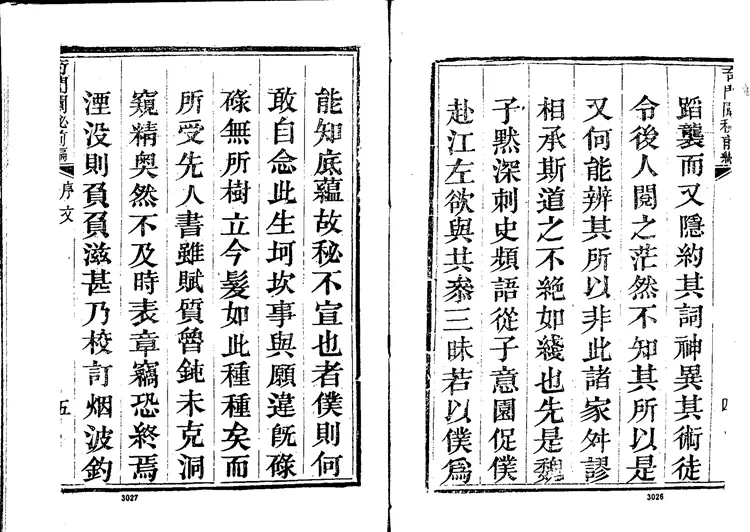 蹈襲而又隱約其詞神異其術徒
令後人閱之茫然不知其所以是
又何能辨其所以非此諸家舛謬
相承斯道之不絶如綫也先是魏
子黙深刺史頻語從子意園促僕
赴江左欲與共叅三昧若以僕爲
3026
能知底蘊故秘不宣也者僕則何
敢自念此生坷坎事與願違旣碌
碌無所樹立今髮如此種種矣而
所受先人書雖賦質魯鈍未克洞
窺精奥然不及時表章竊恐終焉
湮没則負負滋甚乃校訂烟波釣
序文
五
3027